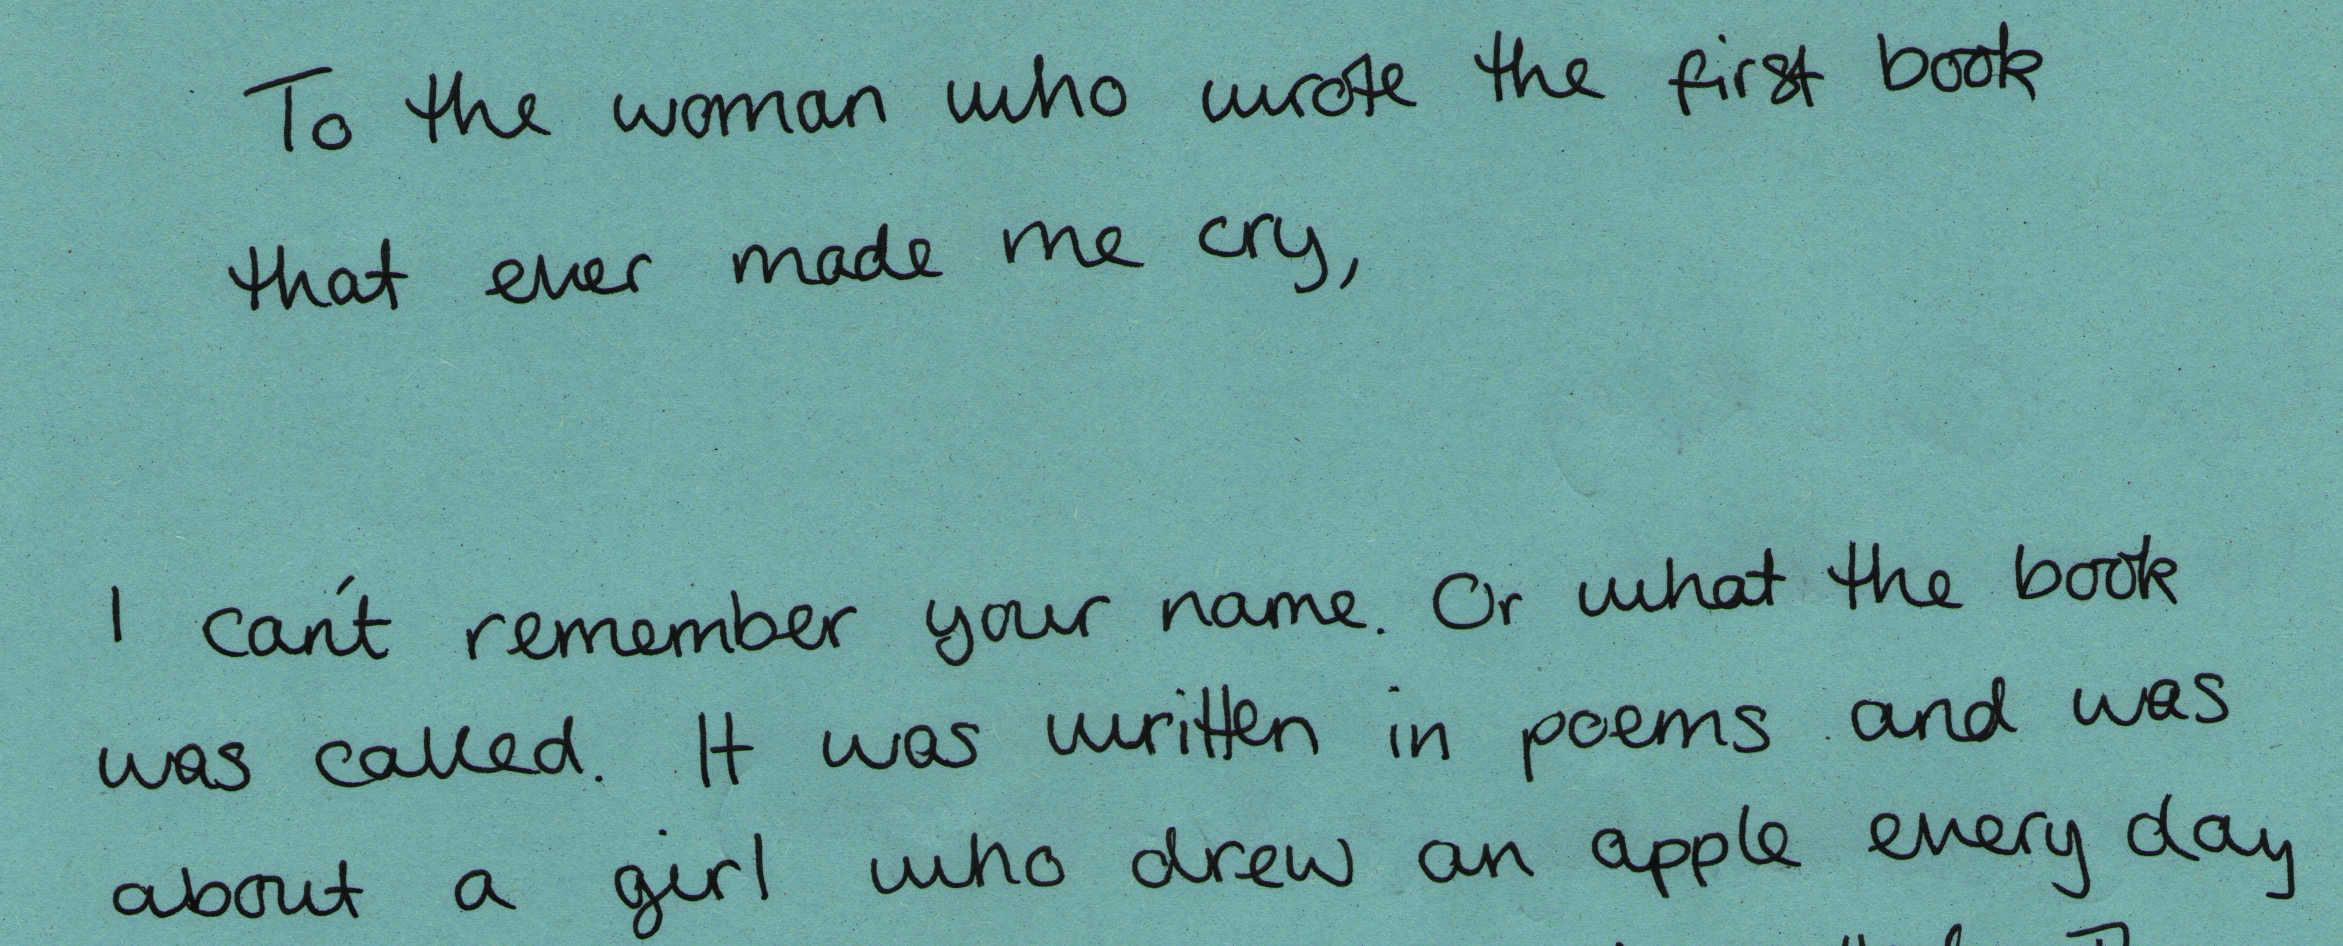 To the woman who wrote the first book
that ever made me cry,
I can't remember your name. Or what the book
was called. It was written in poems and was
about a girl who drew an apple every day